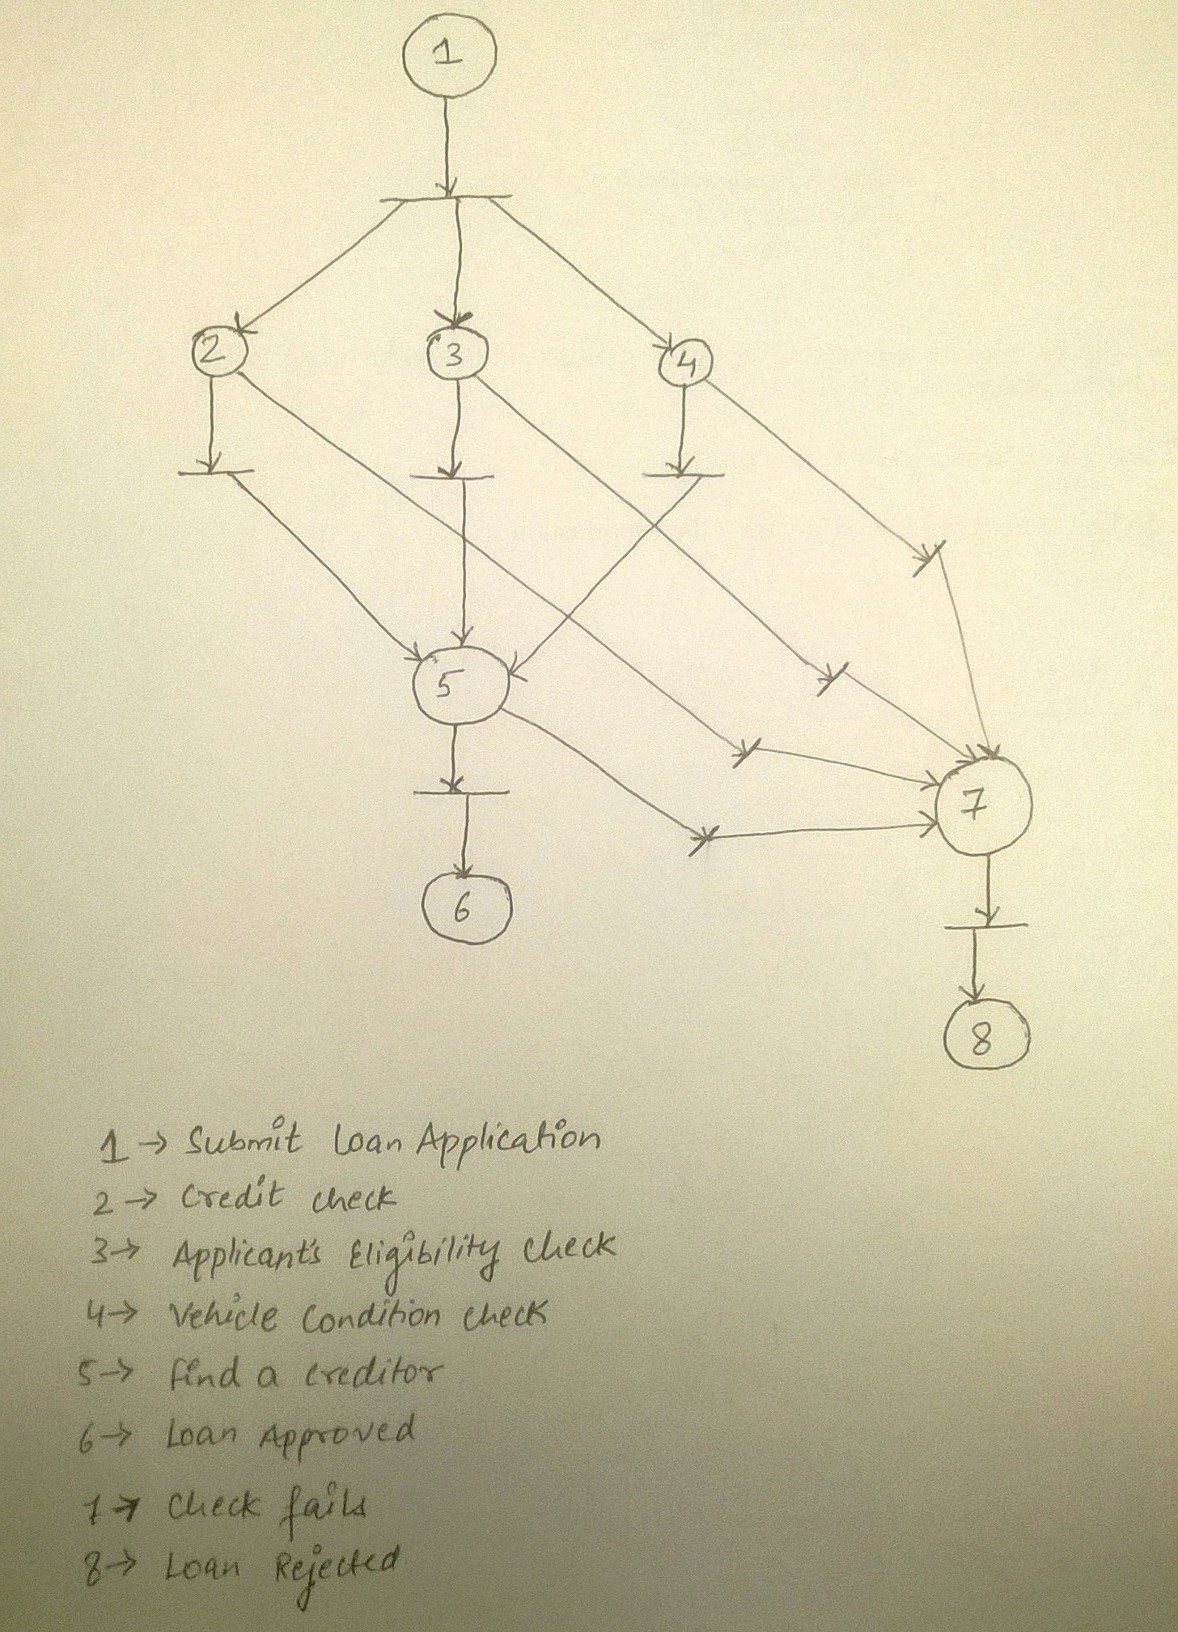 1
2
3
4
5
6
7
8
1 → Submit Loan Application
2 → Credit check
3 → Applicant's Eligibility check
4 → Vehicle Condition check
5 → Find a creditor
6 → Loan Approved
7 → Check fails
8 → Loan Rejected